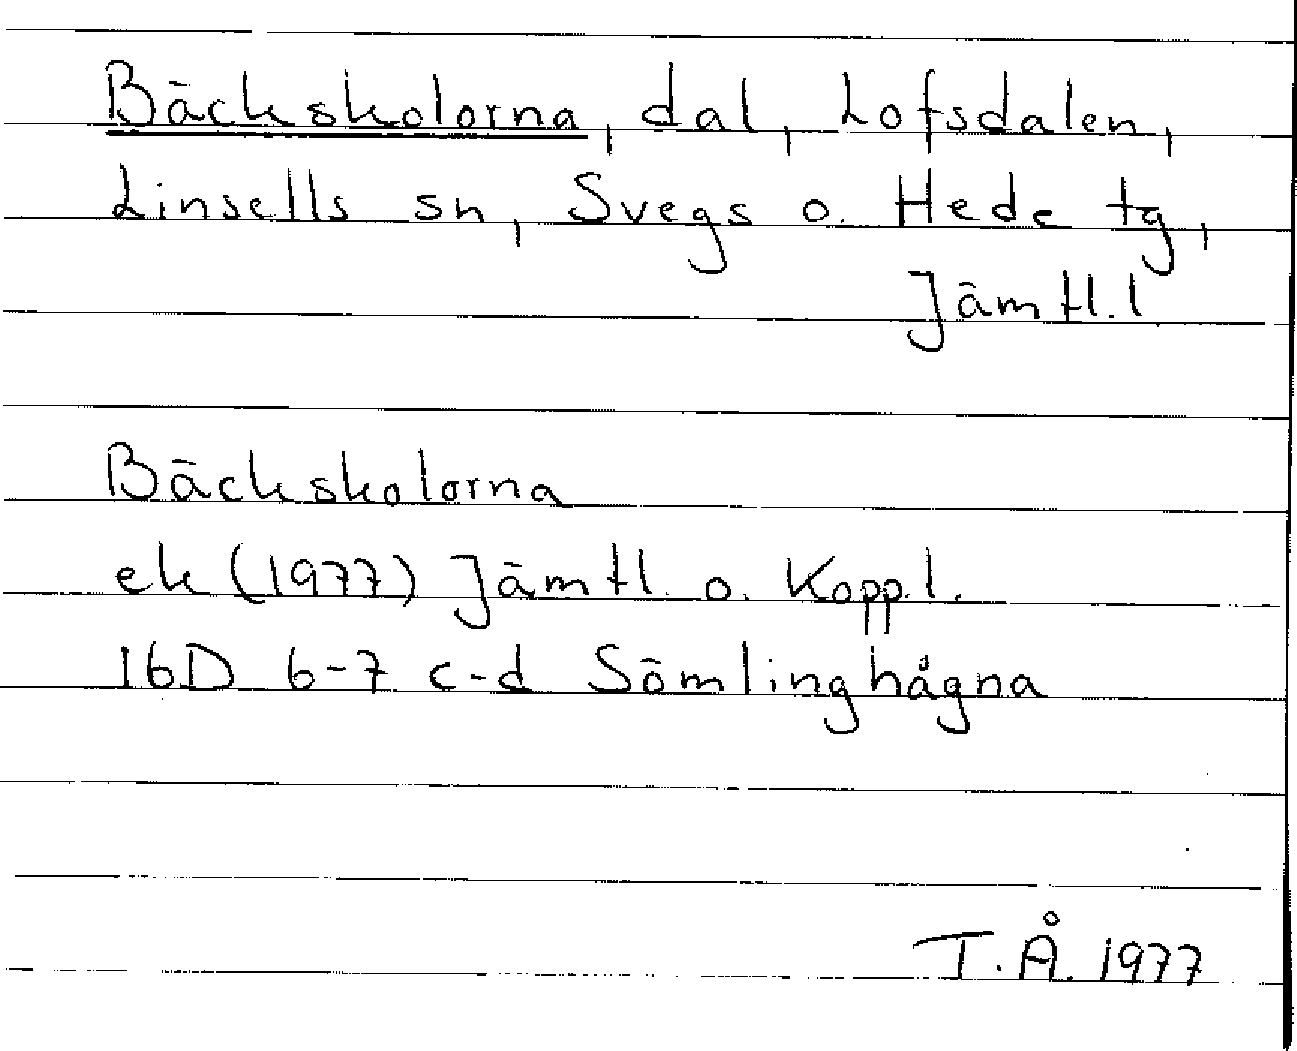 Bäckskolorna, dal, Lofsdalen,
Linsells sn, Svegs o. Hede tg,
Jämtl. l
Bäckskolorna
ek (1977) Jämtl. o. Kopp. l.
16D 6-7 c-d Sömlinghågna
T. Å. 1977